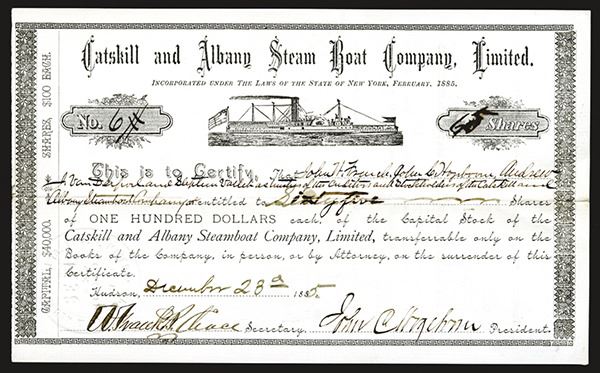 Catskill and Albany Steam Boat Company, Limited.
INCORPORATED UNDER THE LAWS OF THE STATE OF NEW YORK, FEBRUARY, 1885.
No. 64
65 Shares
CAPITAL, $40,000. SHARES, $100 EACH.
This is to Certify, That John H. French, John C. Hogeboom, Andrew
J. Van and as trustees of the and of the Catskill and
Albany Steamboat Company entitled to Sixty five Shares
of ONE HUNDRED DOLLARS each, of the Capital Stock of the
Catskill and Albany Steamboat Company, Limited, transferrable only on the
Books of the Company, in person, or by Attorney, on the surrender of this
Certificate.
Hudson, December 23d 1885.
Secretary. John C. Hogeboom President.